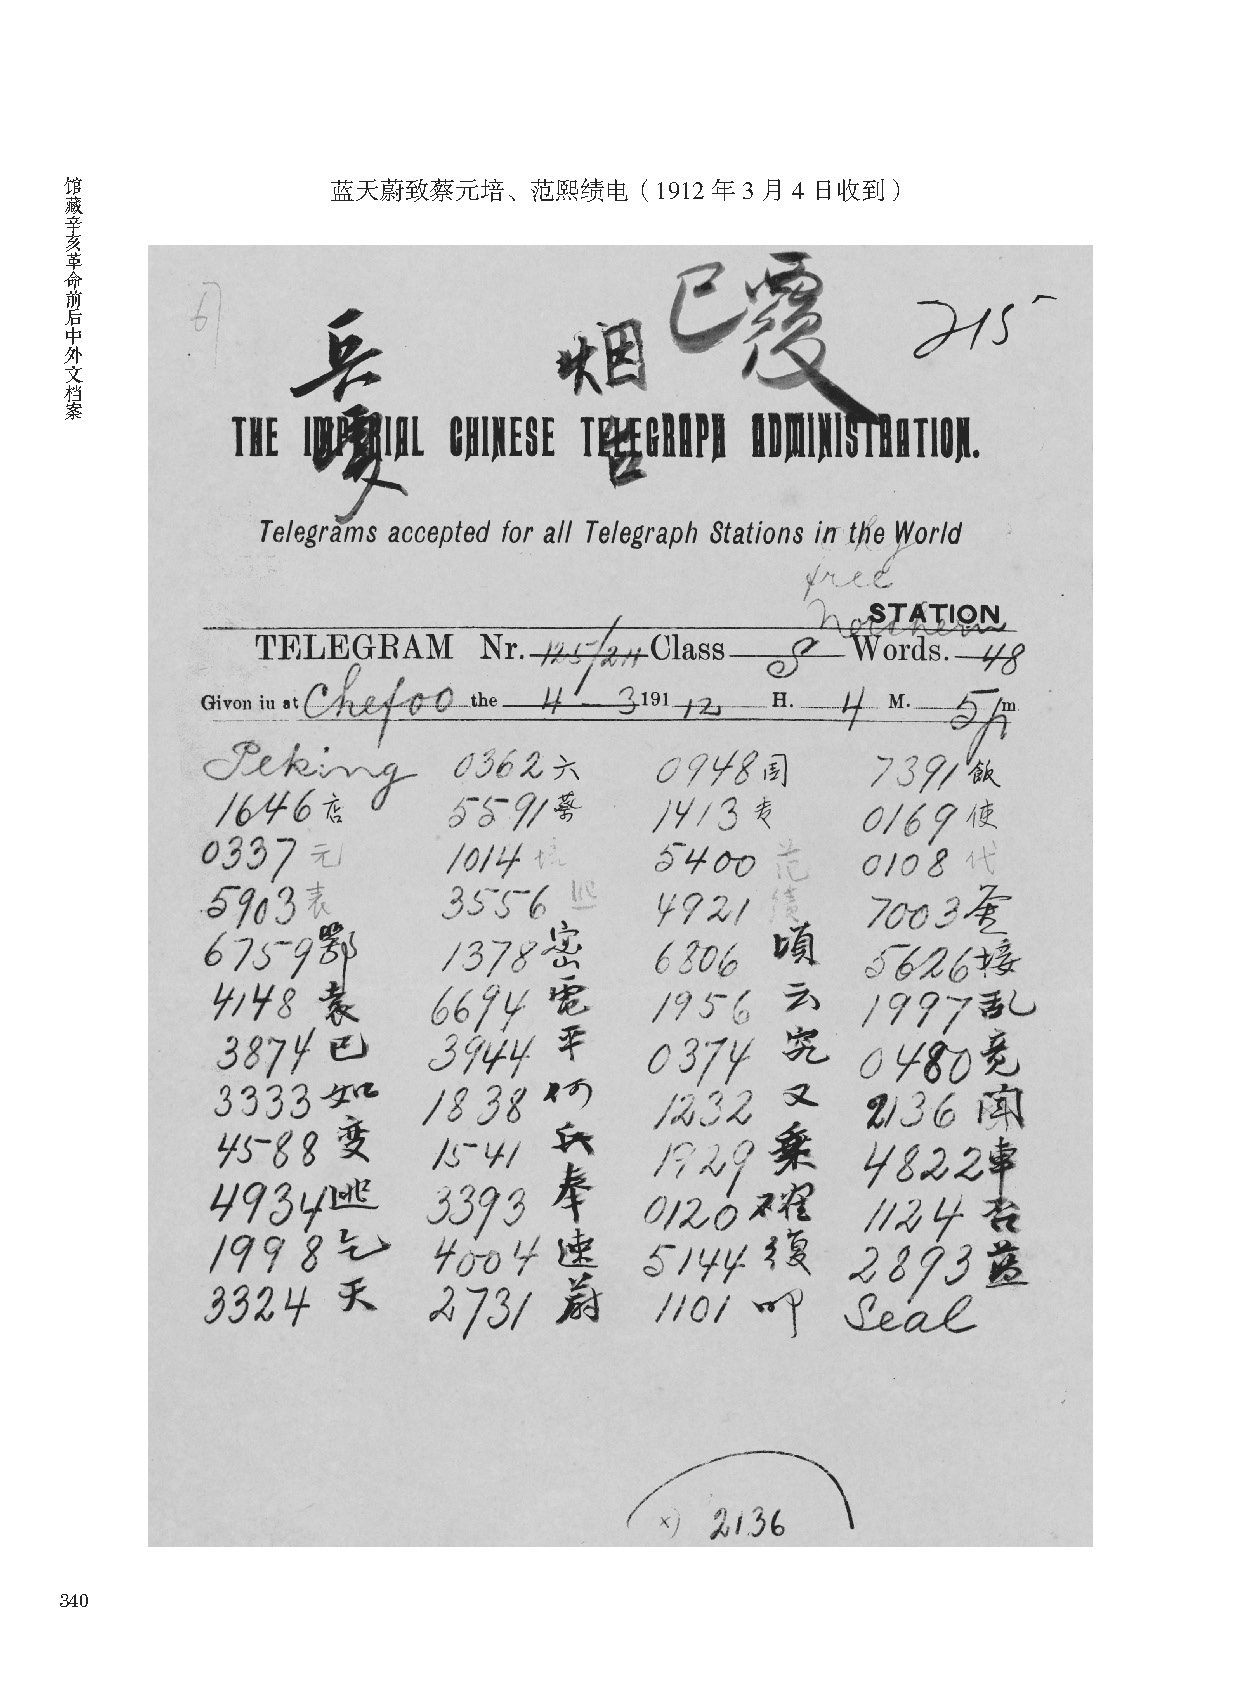 馆藏辛亥革命前后中外文档案
蓝天蔚致蔡元培、范熙绩电（1912 年 3 月 4 日收到）
已覆
215
兵变
烟台
THE IMPERIAL CHINESE TELEGRAPH ADMINISTRATION.
Telegrams accepted for all Telegraph Stations in the World
free
Northern
STATION
TELEGRAM Nr. 125/2H Class S Words. 48
Givon iu at Chefoo the 4-3 191 12 H. 4 M. 5/m
Peking 0362 六 0948 周 7391 飯
1646 店 5591 蔡 1413 专 0169 使
0337 元 1014 培 5400 范 0108 代
5903 表 3556 熙 4921 績 7003
6759 鄂 1378 密 6806 頃 5626 接
4148 袁 6694 電 1956 云 1997 乱
3874 已 3944 平 0374 究 0480 竟
3333 如 1838 何 1232 又 2136 闻
4588 变 1541 兵 1929 乘 4822 車
4934 逃 3393 奉 0120 確 1124 否
1998 乞 4004 速 5144 復 2893 蓝
3324 天 2731 蔚 1101 叩 Seal
x) 2136
340